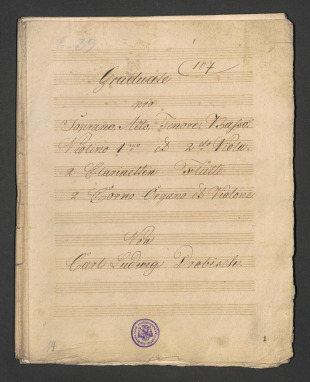 K-39
Graduale 107
pro
Soprano, Alto, Tenore, Basso
Violino 1mo et 2do Viola
2 Clarinetten Flauti
2 Corno Organo et Violone
Von
Carl Ludwig Drobisch